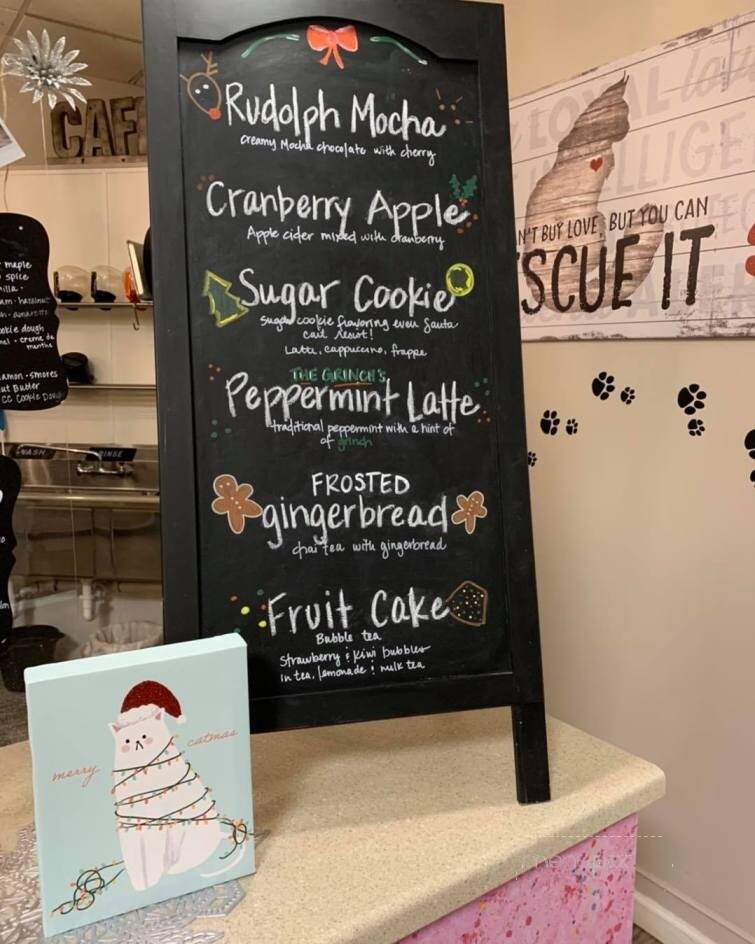 CAFE
Rudolph Mocha
creamy Mocha chocolate with cherry
Cranberry Apple
Apple cider mixed with cranberry
Sugar Cookie
sugar cookie flavoring even Santa
cant resist!
Latte, cappuccino, frappe
THE GRINCH'S
Peppermint Latte
traditional peppermint with a hint of
of grinch
FROSTED
gingerbread
chai tea with gingerbread
Fruit Cake
Bubble tea
Strawberry & kiwi bubbles
in tea, lemonade & milk tea
merry catmas
maple
spice
illa
am - hazelnut
amaretto
okie dough
mel - creme de
menthe
amon - smores
ut Butter
CC Cookie Dou
WASH
RINSE
LOYAL
LLIGE
N'T BUY LOVE, BUT YOU CAN
SCUE IT